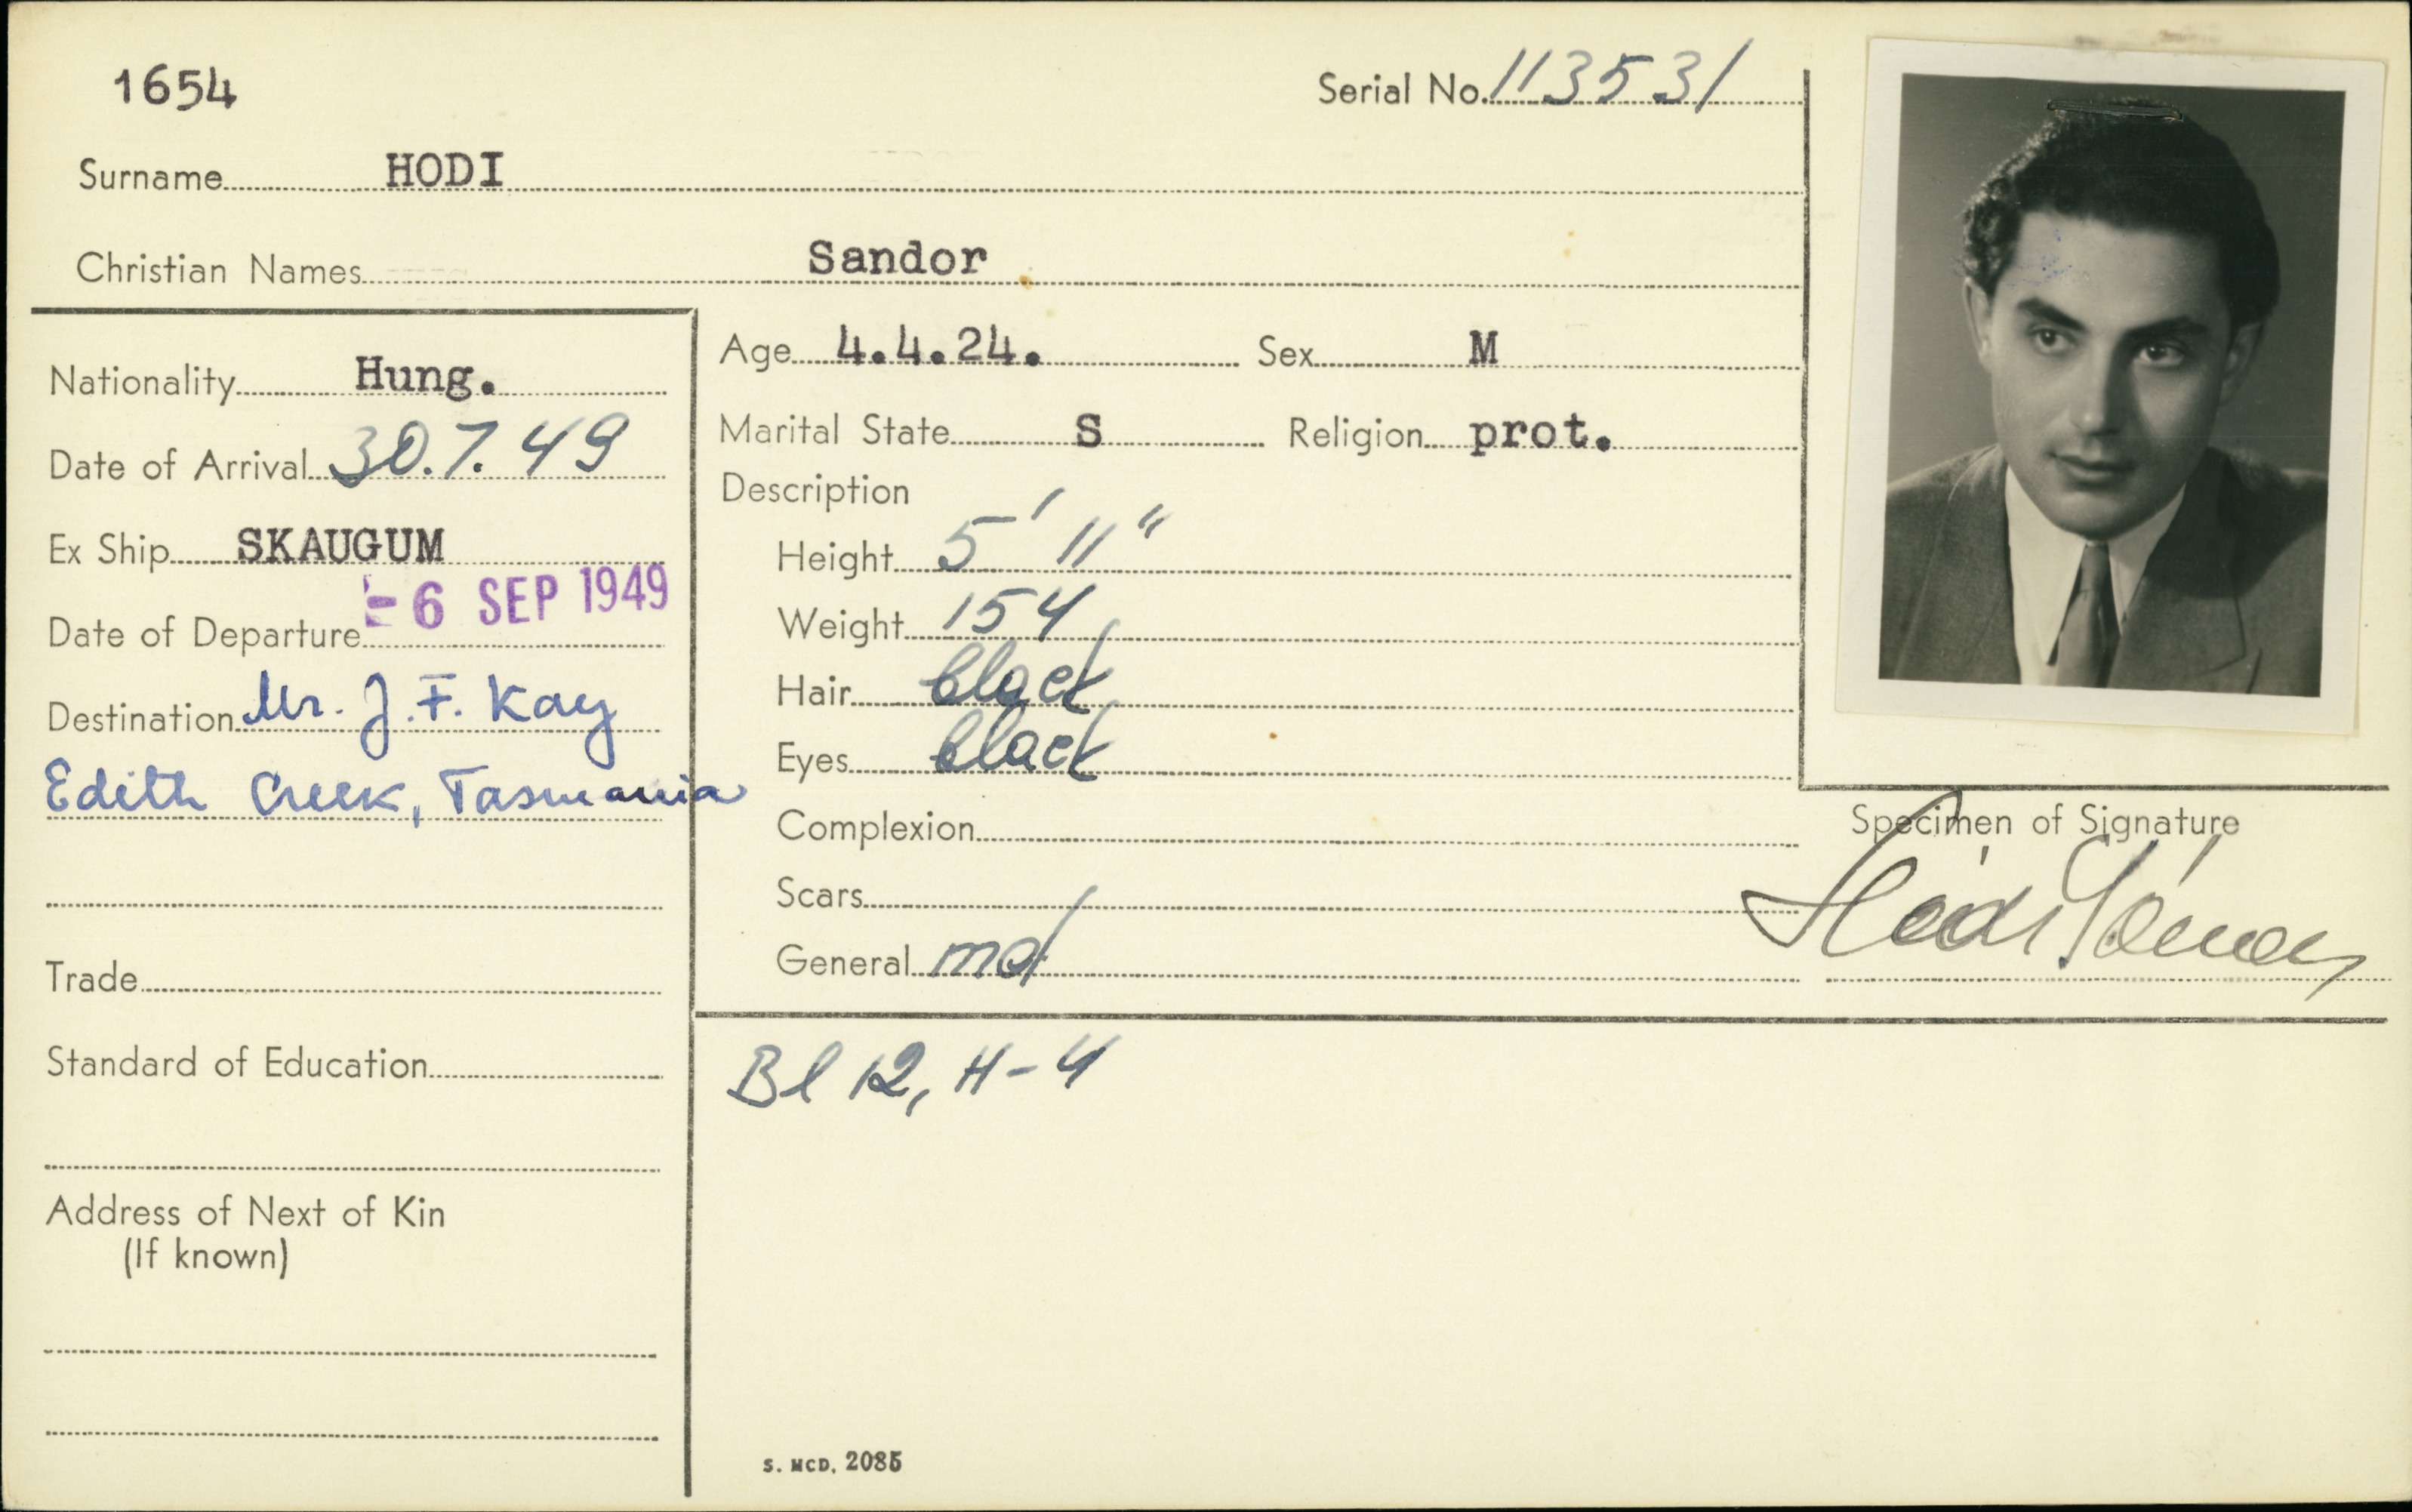 1654
Serial No. 113531
Surname HODI
Christian Names Sandor
Nationality Hung.
Date of Arrival 30.7.49
Ex Ship SKAUGUM
Date of Departure - 6 SEP 1949
Destination Mr. J. F. Kay
Edith Creek, Tasmania
Trade
Standard of Education
Address of Next of Kin
(If known)
Age 4.4.24. Sex M
Marital State S Religion prot.
Description
Height 5' 11"
Weight 154
Hair black
Eyes black
Complexion
Scars
General
Specimen of Signature
Hódi Sándor
Bl 12, H-4
S. MCD. 2085